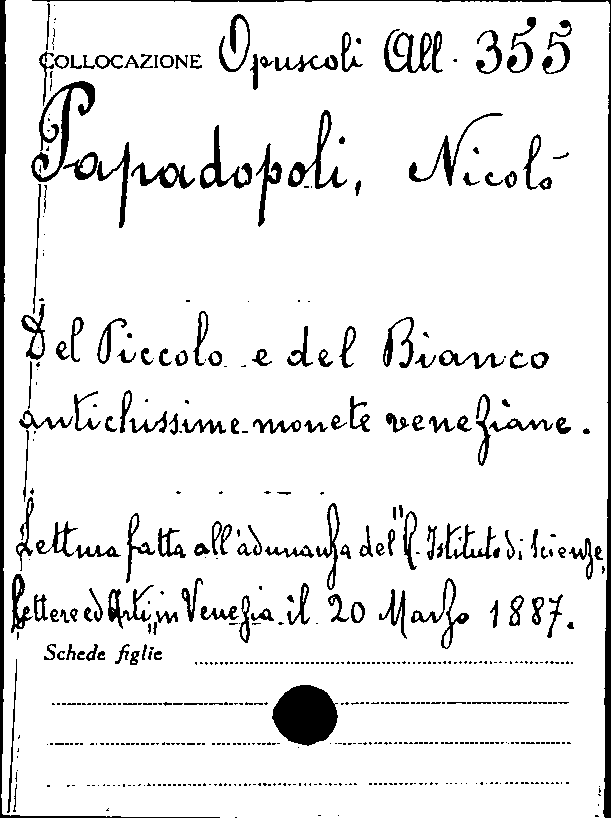 COLLOCAZIONE Opuscoli All. 355
Papadopoli, Nicolò
Del Piccolo e del Bianco
antichissime monete veneziane.
Lettura fatta all'adunanza del "R. Istituto di Scienze,
Lettere ed Arti„ in Venezia il 20 Marzo 1887.
Schede figlie